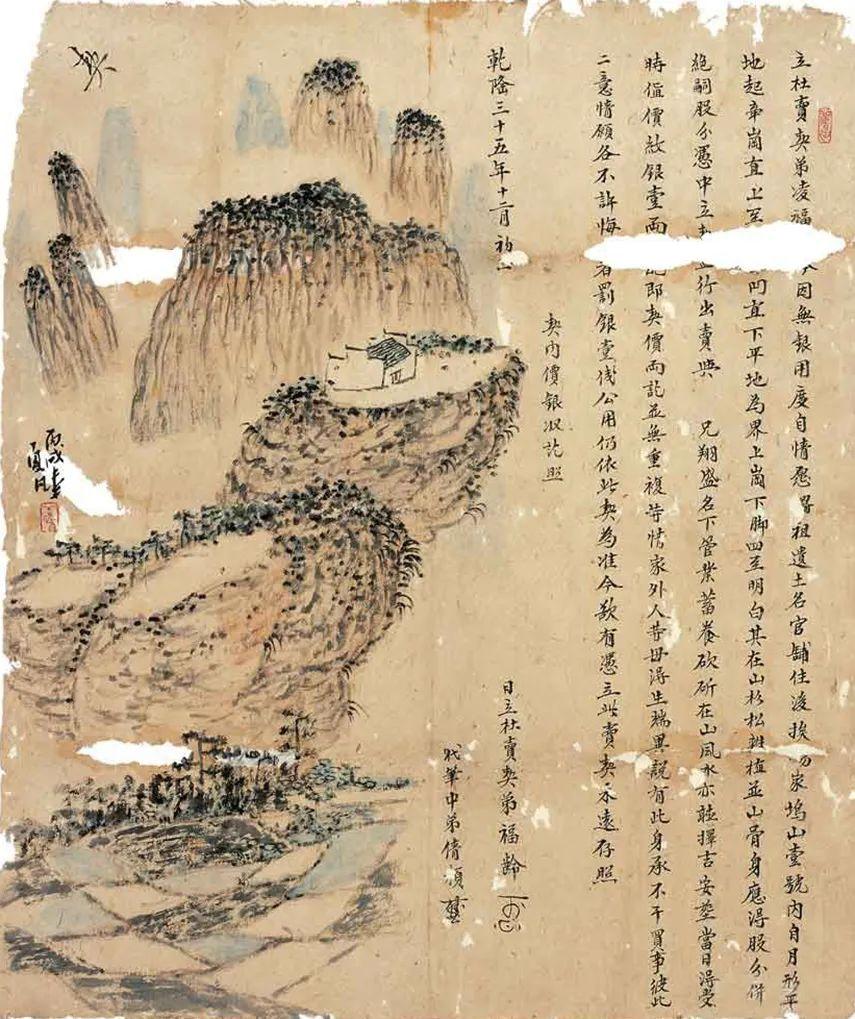 立杜賣契弟凌福 今因無銀用度自情愿將祖遺土名官舖住後挨 家塢山壹號內自月形平
地起聿崗直上至 凹直下平地為界上崗下脚四至明白其在山杉松雜植並山骨身應得股分併
絕嗣股分憑中立 行出賣與 兄翔盛名下管業蓄養砍斫在山風水亦聽擇吉安塋當日得受
時值價紋銀壹両 即契價両訖並無重複等情家外人等毋得生端異說有此身承不干買事彼此
二意情願各不許悔 者罰銀壹 公用仍依此契為准今欲有憑立此賣契永遠存照
契內價銀收訖照
乾隆三十五年十二月初
日立杜賣契弟福齡
代筆中弟倩禎
契
丙戌春